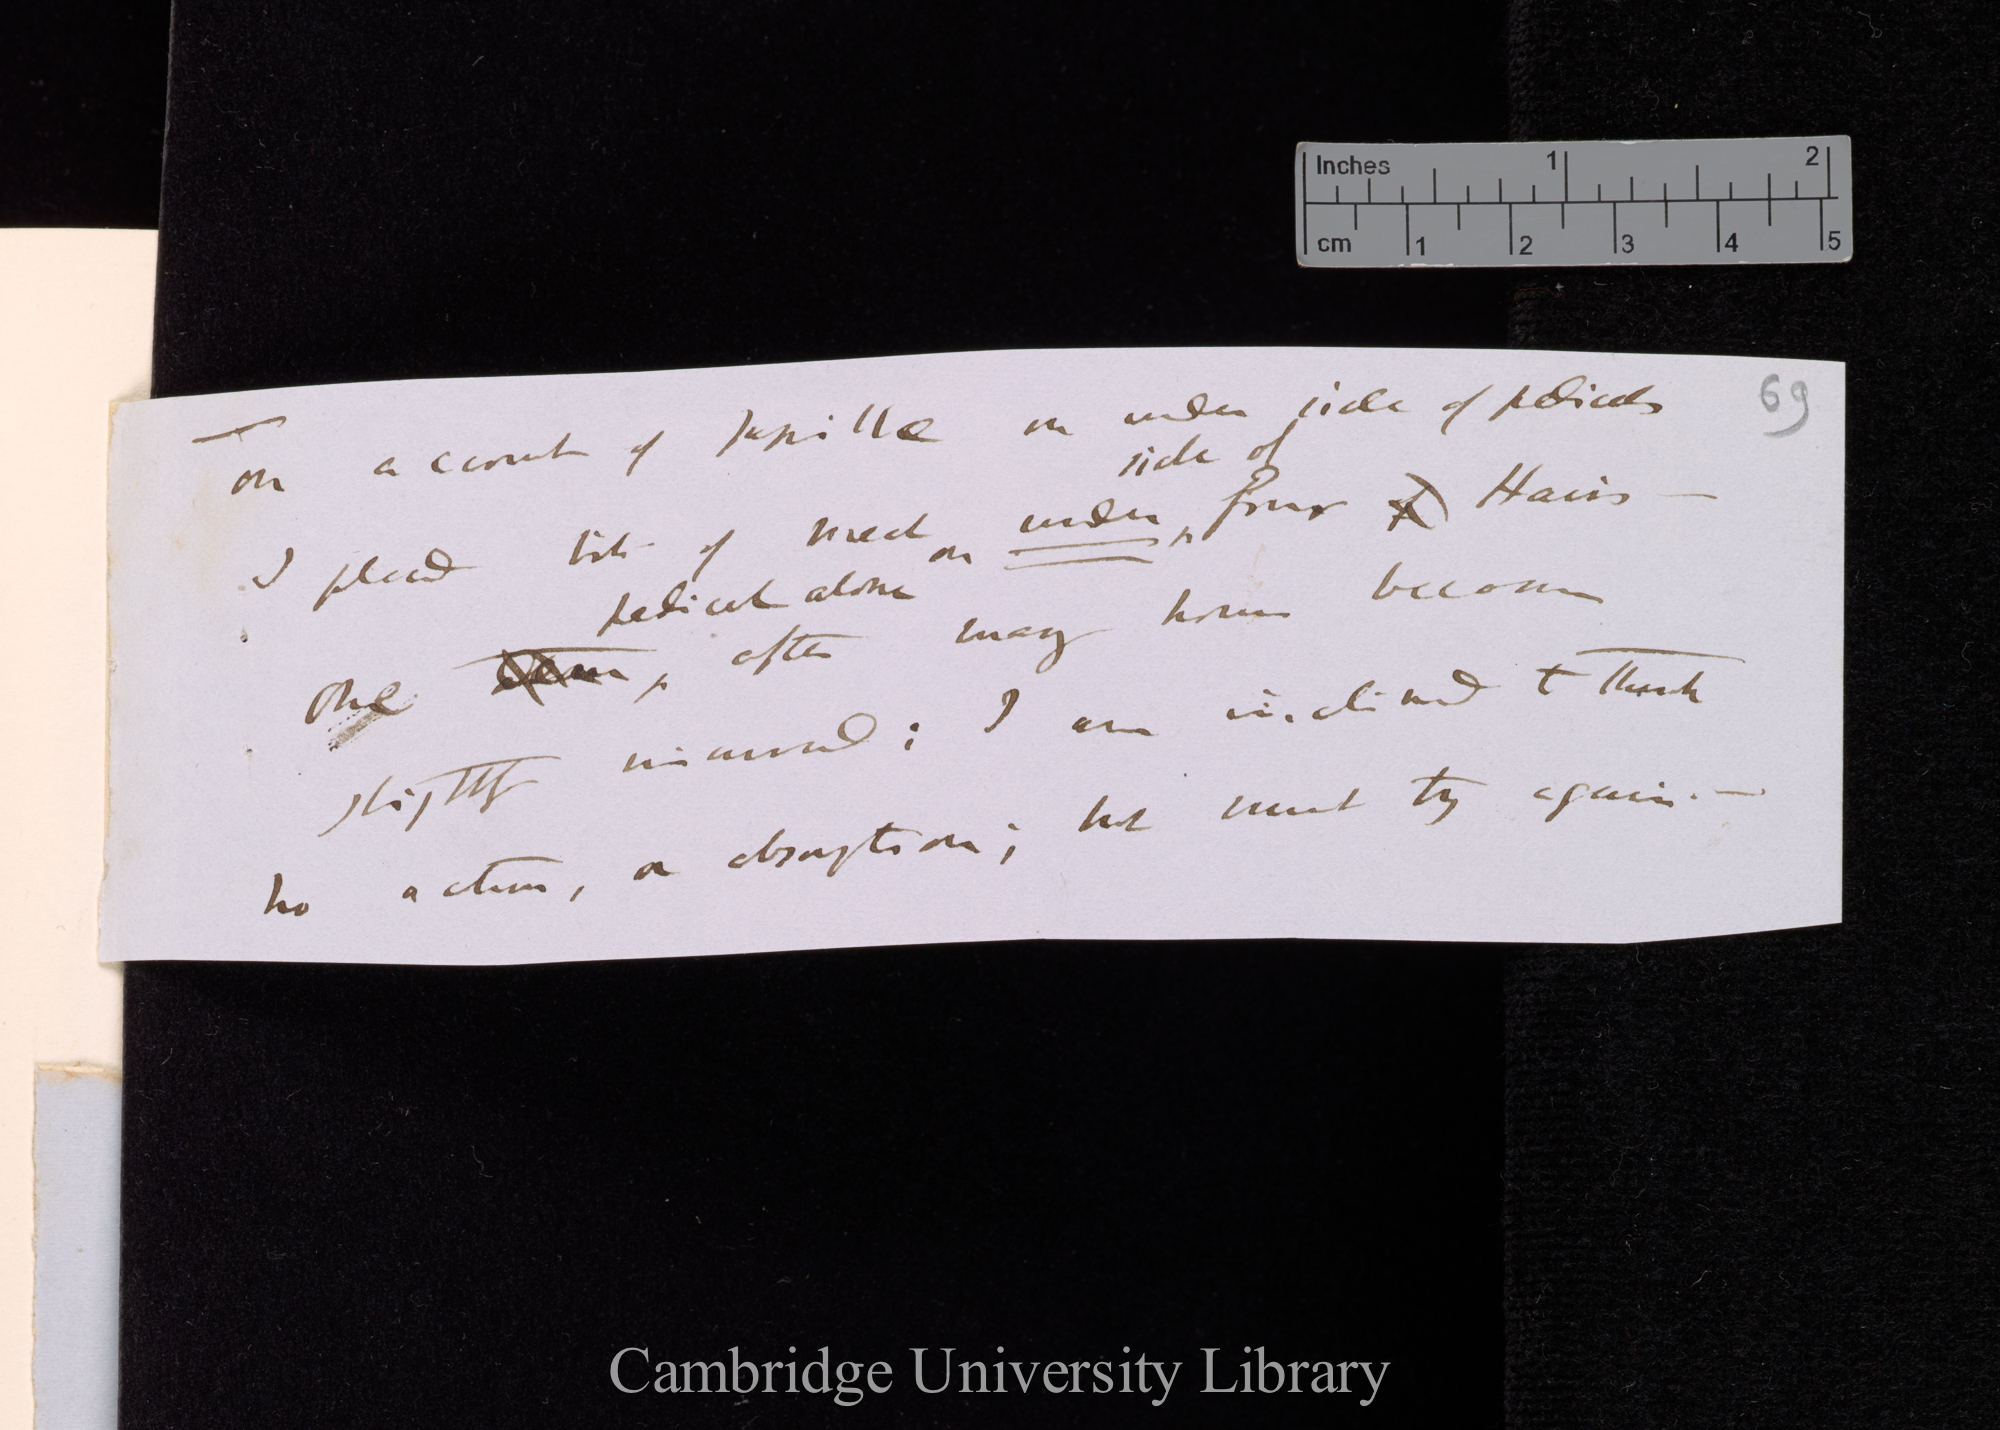 Inches 1 2
cm 1 2 3 4 5
69
On account of papillæ on under side of pedicels
side of
I placed bits of meat on under four Hairs —
pedicel alone
One after many hours became
slightly incurved; I am inclined to think
no action, or absorption; but must try again. —
Cambridge University Library